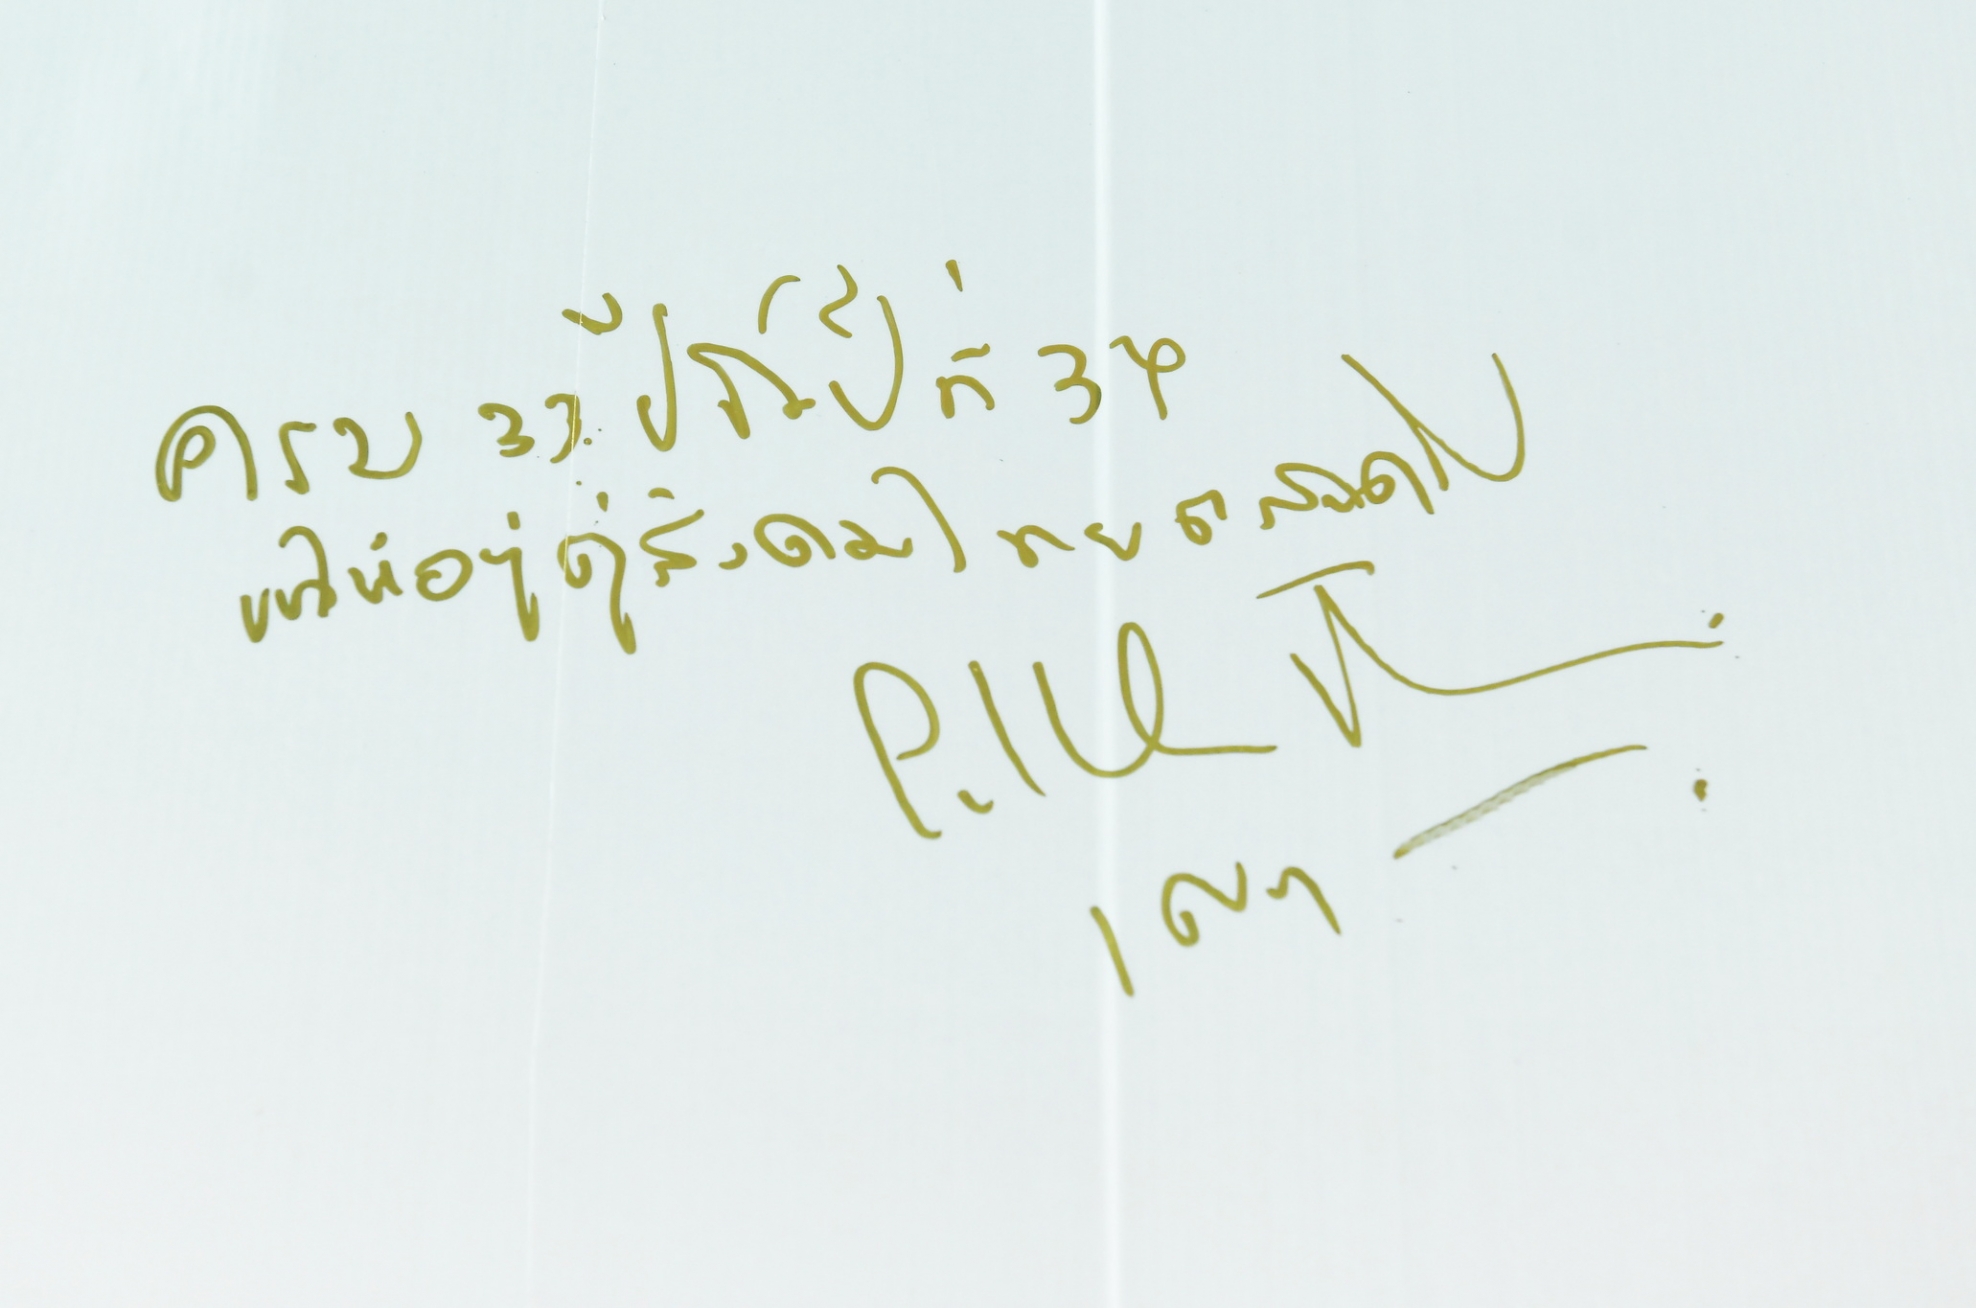 ครบ 33 ปี ก้าวสู่ปีที่ 34
ขอให้อยู่คู่สังคมไทยตลอดไป